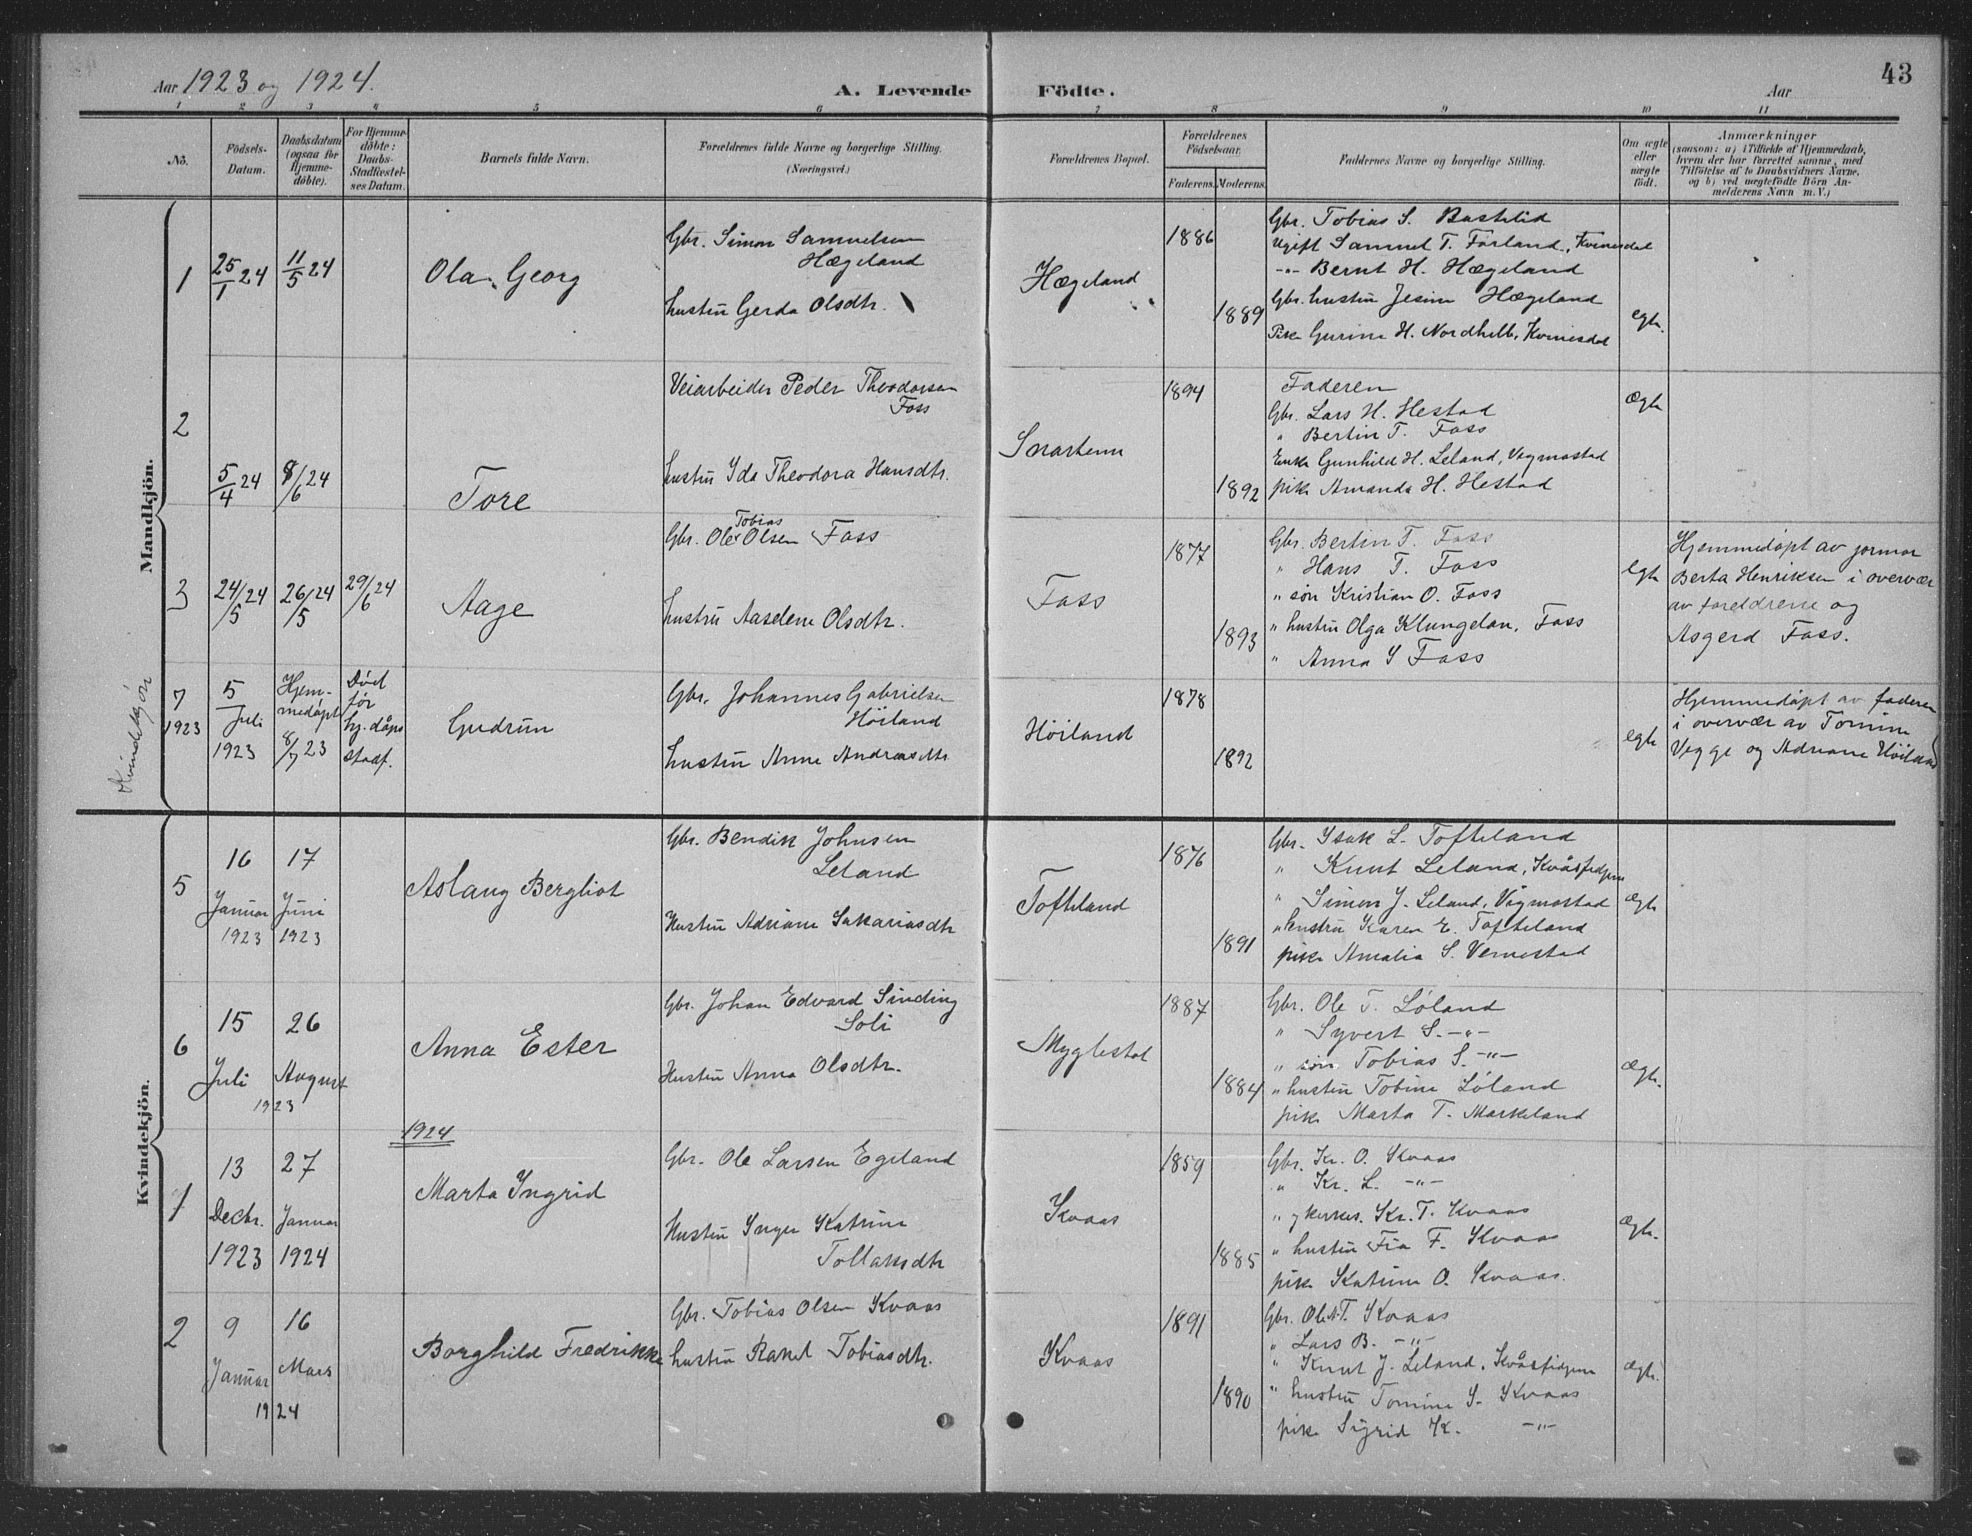 Aar 1923 og 1924.
A. Levende Födte.
Aar
43
1 2 3 4 5 6 7 8 9 10 11
No.
Födsels-Datum.
Daabsdatum (ogsaa for Hjemme-döbte).
For Hjemme-döbte: Daabs-Stadfæstel-ses Datum.
Barnets fulde Navn.
Forældrenes fulde Navne og borgerlige Stilling. (Næringsvei.)
Forældrenes Bopæl.
Forældrenes Födselsaar.
Faderens. Moderens.
Faddernes Navne og borgerlige Stilling.
Om ægte eller uægte födt.
Anmærkninger
(saasom: a) i Tilfælde af Hjemmedaab, hvem der har forrettet samme, med Tilföielse af to Daabsvidners Navne, og b) ved uægtefödte Börn An-melderens Navn m. V.)
Mandkjön.
1
25/1 24
11/5 24
Ola Georg
Gbr. Simon Samuelsen
Hægeland
hustru Gerda Olsdtr.
Hægeland
1886
1889
Gbr. Tobias S.
Ugift Samuel T. Førland, Kvinesdal
-"- Bernt H. Hægeland
Gbr. hustru Jesine Hægeland
Pike Gurine H. Kvinesdal
egte.
2
5/4 24
8/6 24
Tore
Veiarbeider Peder Theodorsen
Foss
hustru Ida Theodora Hansdtr.
Snartemo
1894
1892
Faderen
Gbr. Lars H. Hestad
" Bertin T. Foss
Enke Gunhild H. Leland, Vigmostad
pike Amanda H. Hestad
Ægte
3
24/5 24
26/5 24
29/6 24
Aage
Gbr. Ole Tobias Olsen Foss
hustru Aaselene Olsdtr.
Foss
1877
1893
Gbr. Bertin T. Foss
" Hans T. Foss
" søn Kristian O. Foss
" hustru Olga Klungelan, Foss
" Anna S Foss
egte
Hjemmedøpt av jormor
Berta Henriksen i overvær
av foreldrene og
Asgerd Foss.
Kvindekjön
7
1923
5 Juli 1923
Hjem-medøpt 8/7 23
Død før hj.dåps stadf.
Gudrun
Gbr. Johannes Gabrielsen
Höiland
hustru Anne Andreasdtr
Höiland
1878
1892
egte
Hjemmedøpt av faderen
i overvær av Tomine
Vegge og Adriane Höiland
Kvindekjön.
5
16 Januar 1923
17 Juni 1923
Aslaug Bergliot
Gbr. Bendik Johnsen
Leland
Hustru Adriane Sakariasdtr
Tofteland
1876
1891
Gbr. Isak L. Tofteland
" Knut Leland, Kvåsfidjene
" Simon J. Leland, Vigmostad
" hustru Karen E. Tofteland
pike Amalia S. Vemestad
ægte
6
15 Juli
26 August
1923
Anna Ester
Gbr. Johan Edvard Sinding
Soli
Hustru Anna Olsdtr.
Myglestøl
1887
1884
Gbr. Ole T. Løland
" Syvert S. -"-
" søn Tobias S. -"-
" hustru Tobine Løland
pike Marta T. Markeland
ægte.
1924
1
13 Decbr. 1923
27 Januar 1924
Marta Ingrid
Gbr. Ole Larsen Egeland
Hustru Inger Katrine
Tollaksdtr
Kvaas
1859
1885
Gbr. Kr. O. Kvaas
" Kr. L. -"-
" Kr. T. Kvaas
" hustru Fia F. Kvaas
pike Katrine O. Kvaas.
ægte.
2
9 Januar
16 Mars
1924
Borghild Fredrikke
Gbr. Tobias Olsen Kvaas
hustru Rakel Tobiasdtr.
Kvaas
1891
1890
Gbr. Ole T. Kvaas
" Lars B. -"-
" Knut J. Leland, Kvåsfidjene
" hustru Tomine S. Kvaas
pike Sigrid K. -"-
ægte.